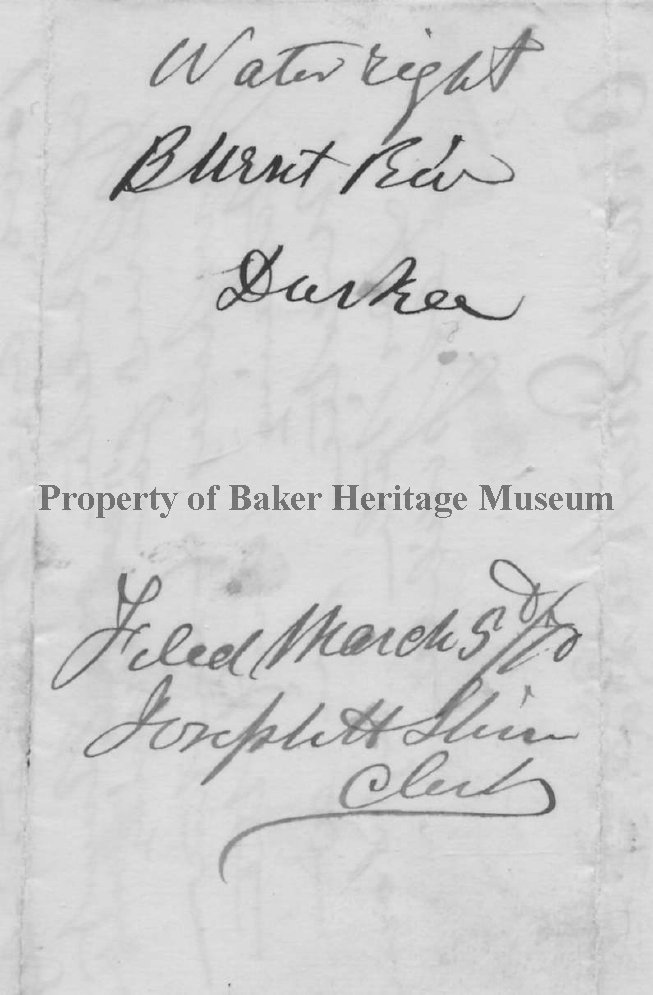 Water right
Burnt Riv
Durkee
Property of Baker Heritage Museum
Filed March 5th
Joseph H Shinn
Clerk